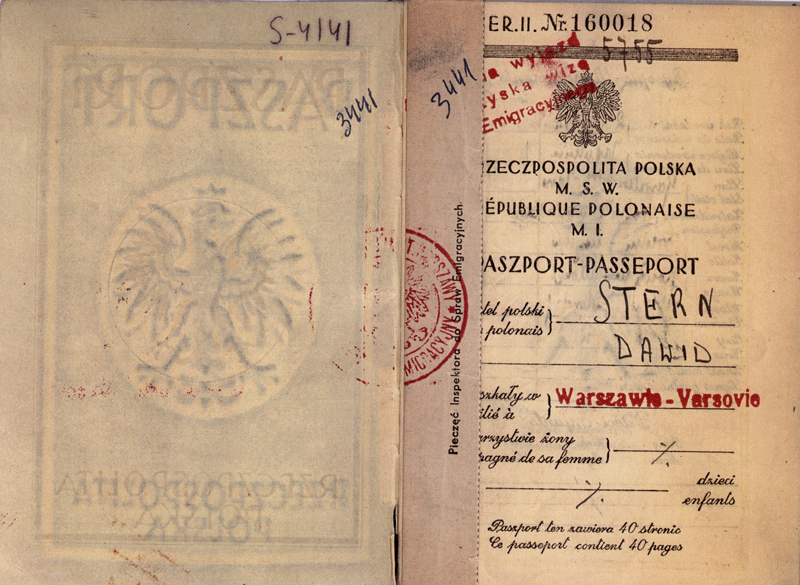 S-4141
PASZPORT
3441
RZECZPOSPOLITA
POLSKA
3441
Pieczęć Inspektora do Spraw Emigracyjnych.
ER. II. Nr. 160018
5755
na wyjazd
yska wizę
Emigracyjnego
ZECZPOSPOLITA POLSKA
M. S. W.
ÉPUBLIQUE POLONAISE
M. I.
PASZPORT-PASSEPORT
tel polski
polonais
STERN
DAWID
szkały w
ilié à
Warszawie-Varsovie
arzystwie żony
pagné de sa femme
%
dzieci
%
enfants
Paszport ten zawiera 40 stronic
Ce passeport contient 40 pages